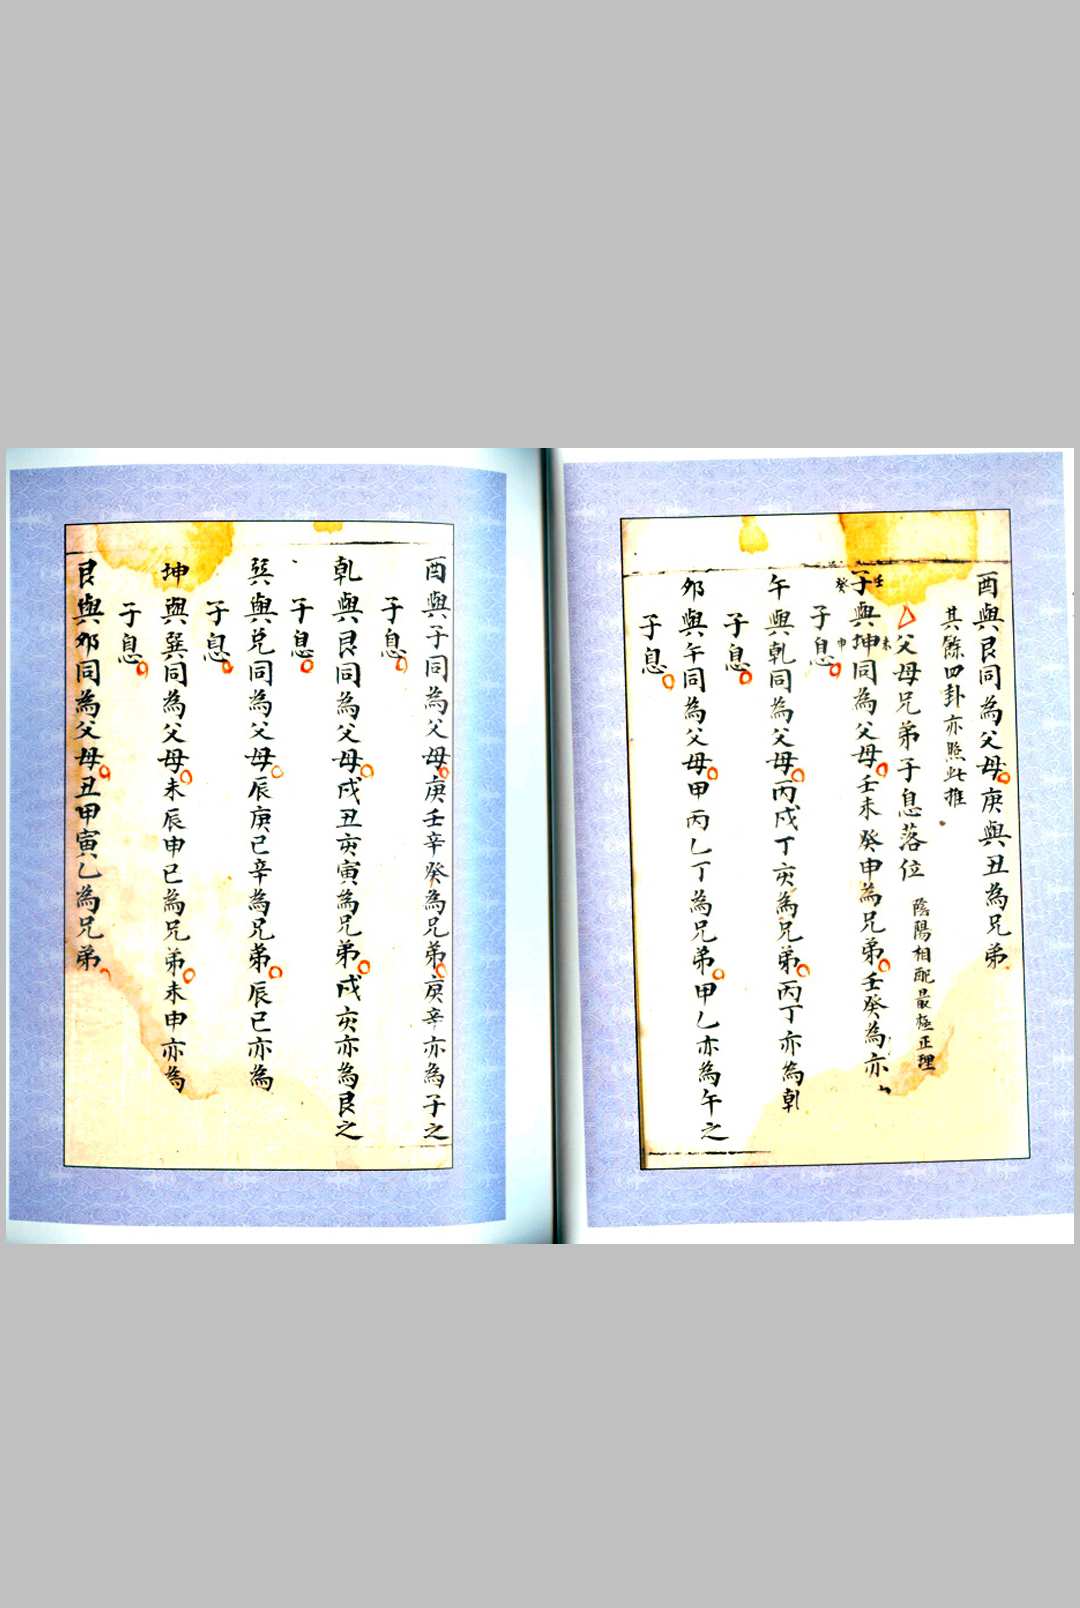 酉與艮同為父母庚與丑為兄弟
其餘四卦亦照此推
父母兄弟子息落位 陰陽相配最極正理
子與坤同為父母壬未癸申為兄弟壬癸為亦
壬
癸
未
申
子息
午與乾同為父母丙戌丁亥為兄弟丙丁亦為乾
子息
夘與午同為父母甲丙乙丁為兄弟甲乙亦為午之
子息
酉與子同為父母庚壬辛癸為兄弟庚辛亦為子之
子息
乾與艮同為父母戌丑亥寅為兄弟戌亥亦為艮之
子息
巽與兌同為父母辰庚巳辛為兄弟辰巳亦為
子息
坤與巽同為父母未辰申巳為兄弟未申亦為
子息
艮與夘同為父母丑甲寅乙為兄弟